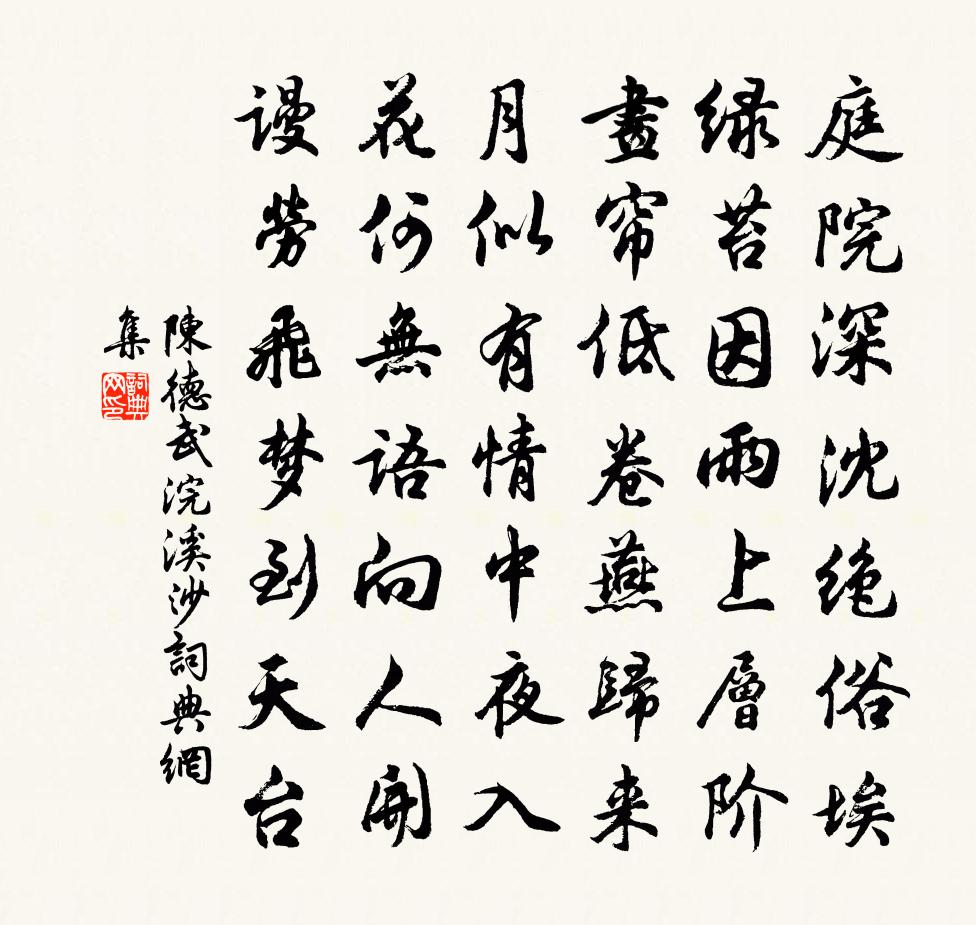 庭院深沈绝俗埃
绿苔因雨上層阶
畫帘低卷燕歸来
月似有情中夜入
花何無語向人開
谩勞飛梦到天台
陳德武浣溪沙詞典網
集
詞典网印